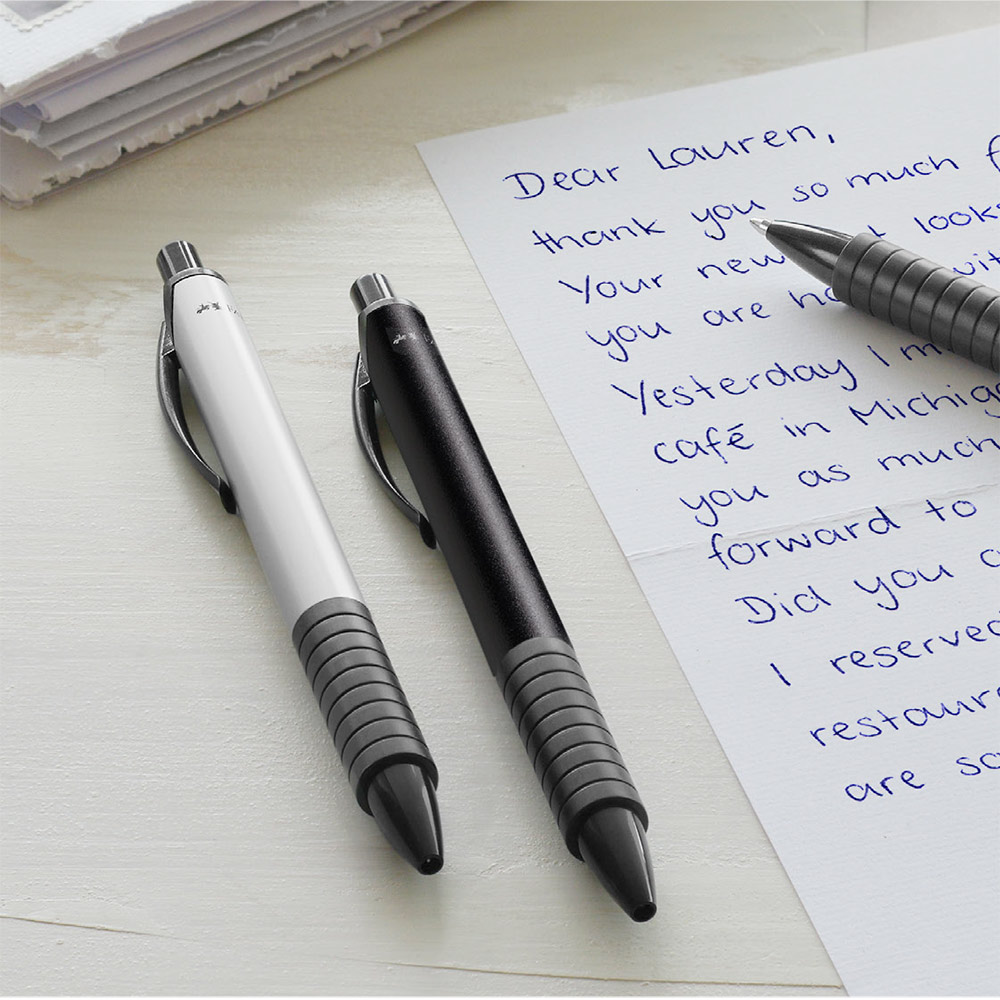 Dear Lauren,
thank you so much
Your new looks
you are
Yesterday I
café in
you as much
forward to
Did you
I reserved
are